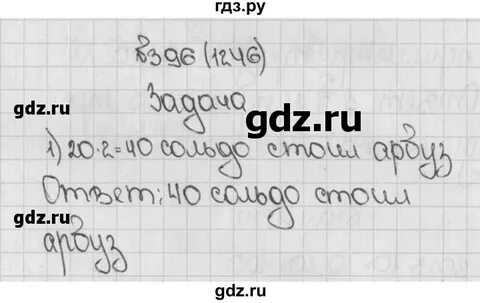 гдз.ру
№396 (1246)
gdz.ru
gdz.ru
Задача
gdz.ru
1) 20·2=40 сольдо стоил арбуз
Ответ: 40 сольдо стоил
gdz.ru
gdz.ru
арбуз
gdz.ru